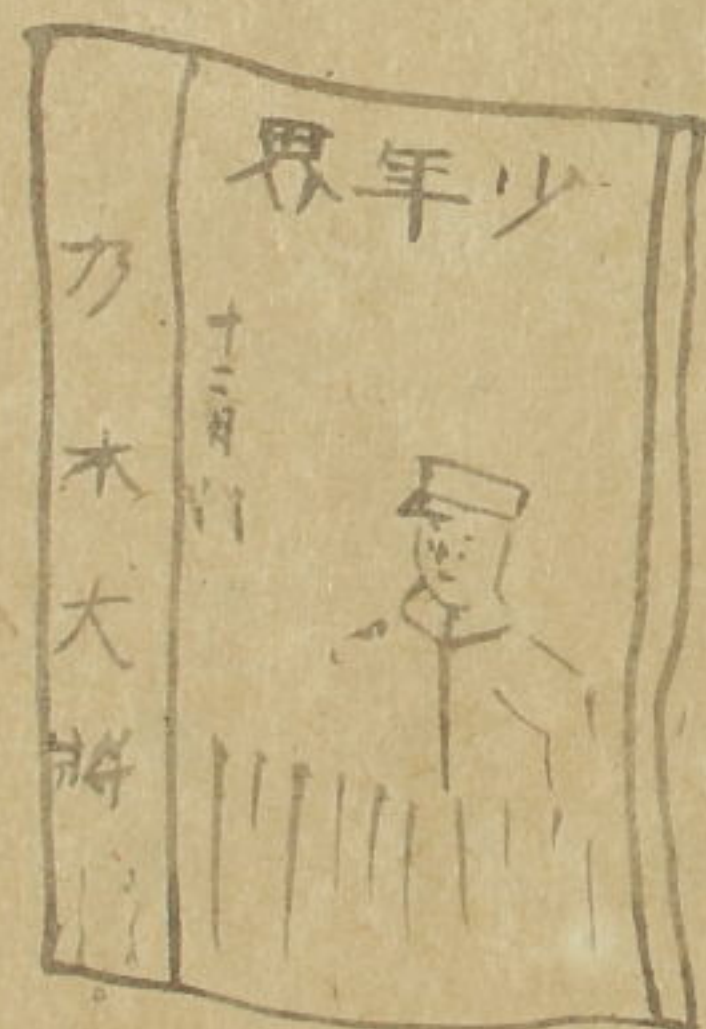 界年少
十二月
乃木大將